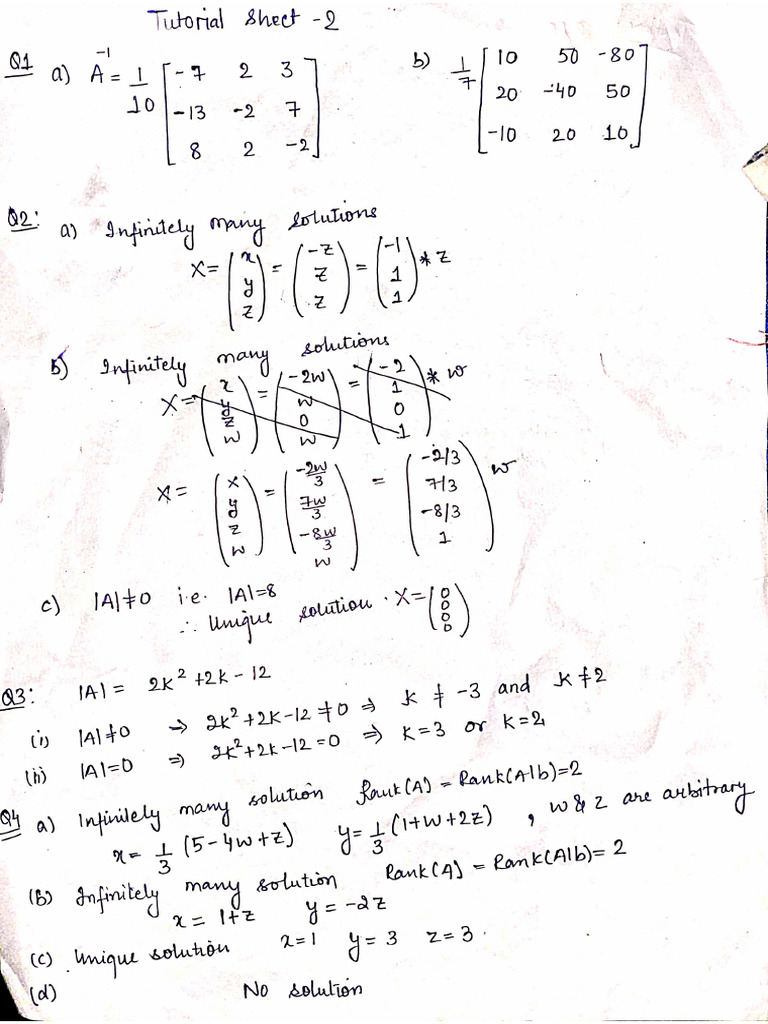 Tutorial Sheet -2
Q1 a) A⁻¹ = 1/10 [-7 2 3
-13 -2 7
8 2 -2]
b) 1/7 [10 50 -80
20 -40 50
-10 20 10]
Q2: a) Infinitely many solutions
X = (x y z) = (-z z z) = (-1 1 1) * z
b) Infinitely many solutions
X = (x y z w) = (-2w w 0 w) = (-2 1 0 1) * w
X = (x y z w) = (-2w/3 7w/3 -8w/3 w) = (-2/3 7/3 -8/3 1) w
c) |A| ≠ 0 i.e. |A|=8
∴ Unique solution . X = (0 0 0 0)
Q3: |A| = 2k² +2k - 12
(i) |A| ≠ 0 → 2k²+2k-12 ≠ 0 ⇒ k ≠ -3 and k ≠ 2
(ii) |A|=0 ⇒ 2k²+2k-12 = 0 ⇒ k=3 or k=2
Q4 a) Infinitely many solution Rank(A) = Rank(A|b)=2
x = 1/3 (5-4w+z) y = 1/3 (1+w+2z) , w & z are arbitrary
(B) Infinitely many solution Rank(A) = Rank(A|b)= 2
x = 1+z y = -2z
(c) Unique solution x=1 y = 3 z = 3.
(d) No solution